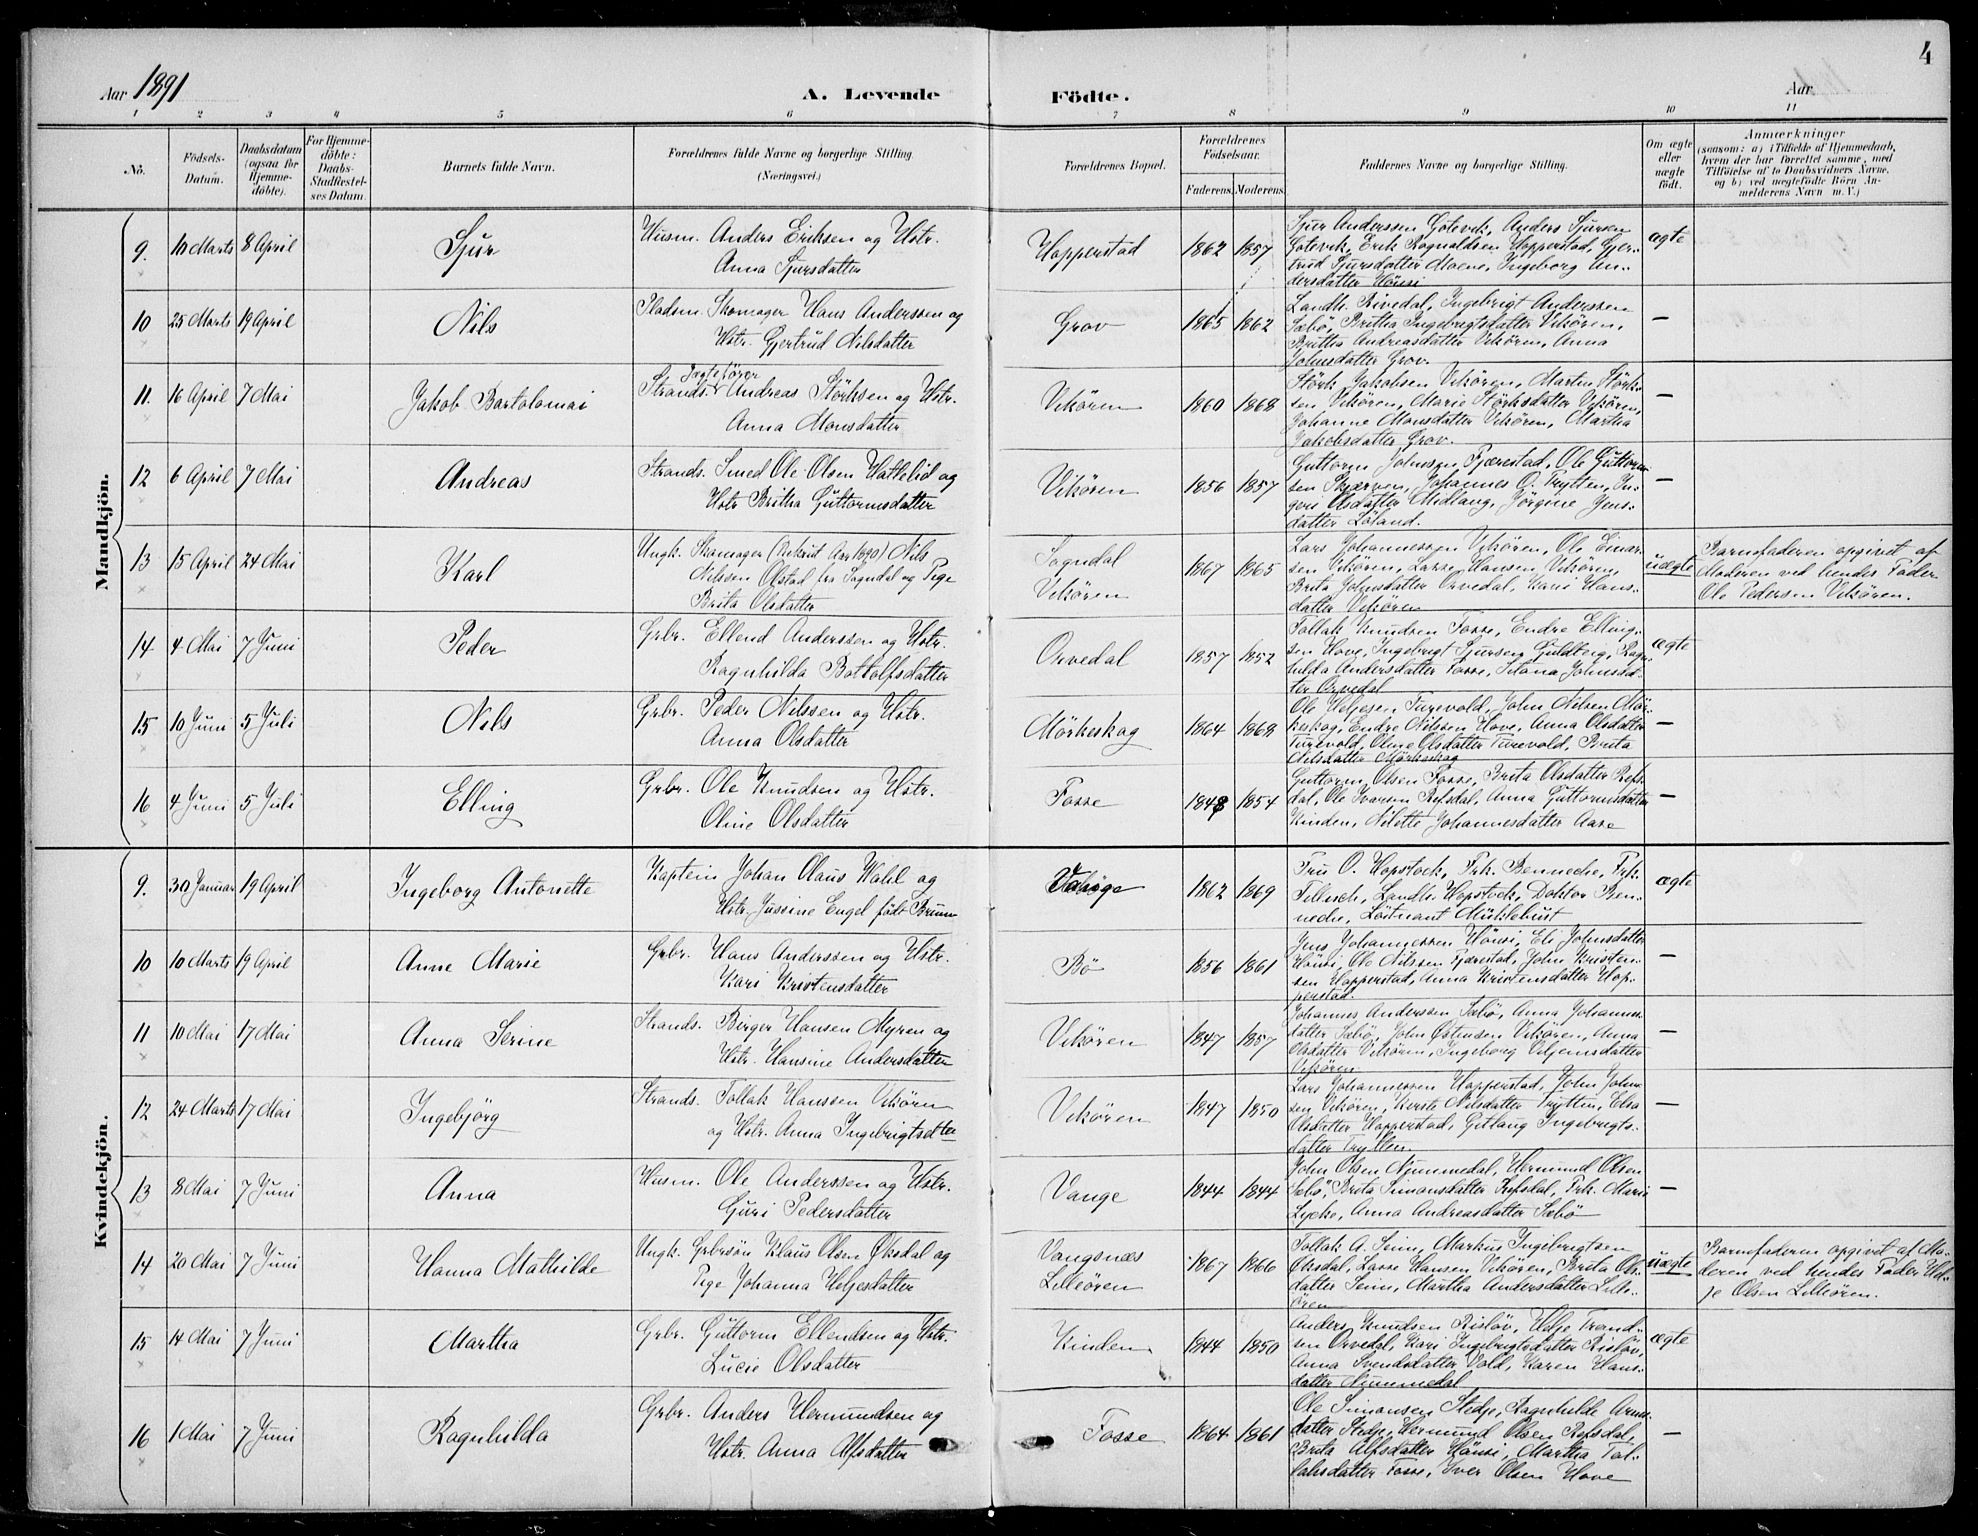 4
Aar 1891 A. Levende Födte. Aar
1 2 3 4 5 6 7 8 9 10 11
No.
Födsels-Datum.
Daabsdatum (ogsaa for Hjemmedöbte).
For Hjemmedöbte: Daabs-Stadfæstelses Datum.
Barnets fulde Navn.
Forældrenes fulde Navne og borgerlige Stilling (Næringsvei.)
Forældrenes Bopæl.
Forældrenes Födselsaar.
Faderens. Moderens.
Faddernes Navne og borgerlige Stilling.
Om ægte eller uægte födt.
Anmærkninger (saasom: a) i Tilfælde af Hjemmedaab, hvem der har forrettet samme, med Tilföielse af to Daabsvidners Navne, og b) ved uægtefödte Börn Anmelderens Navn m. V.)
Mandkjön.
9. 10 Marts 8 April Sjur
Husm. Anders Eriksen og Hstr.
Anna Sjursdatter
Hopperstad 1862 1857
Sjur Anderssen Gotevik, Anders Sjursen
Gotevik, Erik Ragnaldsen Hopperstad, Gjer-
trud Sjursdatter Moene, Ingeborg An-
dersdatter Hönsi
ægte
10 25 Marts 19 April Nils
Pladsm. Skomager Hans Anderssen og
Hstr. Gjertrud Nilsdatter
Grov 1865 1862
Landh. Rivedal, Ingebrigt Anderssen
Sæbö, Britha Ingebrigtsdatter Vikören,
Britha Andreasdatter Vikören, Anna
Johnsdatter Grov.
—
11. 16 April 7 Mai Jakob Bartolomai
Jagtefører
Strands. Andreas Störksen og Hstr.
Anna Monsdatter
Vikören 1860 1868
Störk Jakobsen Vikören, Martin Störk-
sen Vikören, Marie Störksdatter Vikören,
Johanne Monsdatter Vikören, Martha
Jakobsdatter Grov.
—
12 6 April 7 Mai Andreas
Strands. Smed Ole Olsen Hatlelid og
Hstr Britha Guttormsdatter
Vikören 1856 1857
Guttorm Johnsen Fjærestad, Ole Guttorm-
sen Skjærven, Johannes O. Trytten, In-
geri Olsdatter Midlang, Jörgine Jens-
datter Löland.
—
13 15 April 24 Mai Karl
Ungk. Skomager (Rekrut Aar 1890) Nils
Nilssen Olstad fra Sogndal og Pige
Brita Olsdatter
Sogndal
Vikören
1867 1865
Lars Johannessen Vikören, Ole Einar-
sen Vikören, Lasse Hansen Vikören,
Brita Johnsdatter Orvedal, Kari Hans-
datter Vikören
uægte
Barnefaderen opgivet af
Moderen ved hendes Fader
Ole Pedersen Vikören.
14 4 Mai 7 Juni Peder
Grbr. Ellend Anderssen og Hstr.
Ragnhilda Botolfsdatter
Orvedal 1857 1852
Tollak Knudsen Fosse, Endre Elling-
sen Hove, Ingebrigt Sjursen Guldberg, Ragn-
hilda Andersdatter Fosse, Johnsdat-
ter Orvedal
ægte
15 10 Juni 5 Juli Nils
Grbr. Peder Nilssen og Hstr.
Anna Olsdatter
Mörkeskog 1864 1868
Ole Helgesen Turevold, John Nilsen Mör-
keskog, Endre Nilssen Hove, Anna Olsdatter
Turevold, Oline Olsdatter Turevold, Brita
Nilsdatter Mörkeskog
—
16 4 Juni 5 Juli Elling
Grbr. Ole Knudsen og Hstr.
Oline Olsdatter
Fosse 1848 1854
Guttorm Olsen Fosse, Brita Olsdatter Refs-
dal, Ole Ivarsen Refsdal, Anna Guttormsdatter
Kinden, Nilette Johannesdatter Aase
—
Kvindekjön.
9. 30 Januar 19 April Ingeborg Antonette
Kaptein Johan Olaus Wahl og
Hstr. Jussine Engel födt Brun
1862 1869
Fru O. Hopstock, Frk. Bennecke, Frk.
Tillisch, Landh. Hopstock, Doktor Ben-
necke, Löitnant Myklebust
ægte
10 10 Marts 19 April Anne Marie
Grbr. Hans Anderssen og Hstr.
Kari Kristensdatter
Bö 1856 1861
Jens Johannessen Hönsi, Eli Johnsdatter
Hönsi, Ole Nilssen Fjærestad, John Kristen-
sen Hopperstad, Anna Kristensdatter Hop-
perstad.
—
11 10 Mai 17 Mai Anna Serine
Strands. Birger Hansen Myren og
Hstr. Hansine Andersdatter
Vikören 1847 1857
Johannes Anderssen Sæbö, Anna Johannes-
datter Sæbö, John Östensen Vikören, Anna
Olsdatter Vikören, Ingeborg Viljemsdatter
Vikören
—
12 24 Marts 17 Mai Ingebjörg
Strands. Tollak Hanssen Vikören
og Hstr. Anna Ingebrigtsdtter
Vikören 1847 1850
Lars Johannessen Hopperstad, John John-
sen Vikören, Kersti Nilsdatter Trytten, Elsa
Olsdatter Hopperstad, Gitlaug Ingebrigts-
datter Trytten.
—
13 8 Mai 7 Juni Anna
Husm. Ole Anderssen og Hstr.
Guri Pedersdatter
Vange 1844 1844
John Olsen Nummedal, Hermund Olsen
Sæbö, Brita Simonsdatter Refsdal, Frk. Marie
Lycke, Anna Andreasdatter Sæbö
—
14 20 Mai 7 Juni Hanna Mathilde
Ungk. Grbrsön Klaus Olsen Öksdal og
Pige Johanna Heljesdatter
Vangsnæs
Lilleören
1867 1866
Tollak A. Seim, Markus Ingebrigtsen
Öksdal, Lasse Hansen Vikören, Brita Ols-
datter Seim, Martha Andersdatter Lille-
ören
uægte
Barnefaderen opgivet af Mo-
deren ved hendes Fader Hel-
je Olsen Lilleören.
15 14 Mai 7 Juni Martha
Grbr. Guttorm Ellendsen og Hstr.
Lucie Olsdatter
Kinden 1844 1850
Anders Knudsen Rislöv, Helje Trond-
sen Orvedal, Kari Ingebrigtsdatter Rislöv,
Anna Svendsdatter Vold, Karen Hans-
datter Nummedal
ægte
16 1 Mai 7 Juni Ragnhilda
Grbr. Anders Hermundsen og
Hstr. Anna Alfsdatter
Fosse 1864 1861
Ole Simonsen Stedje, Ragnhilde Arnes-
datter Stedje, Hermund Olsen Refsdal,
Brita Alfsdatter Hönsi, Martha Tol-
laksdatter Fosse, Iver Olsen Hove
—